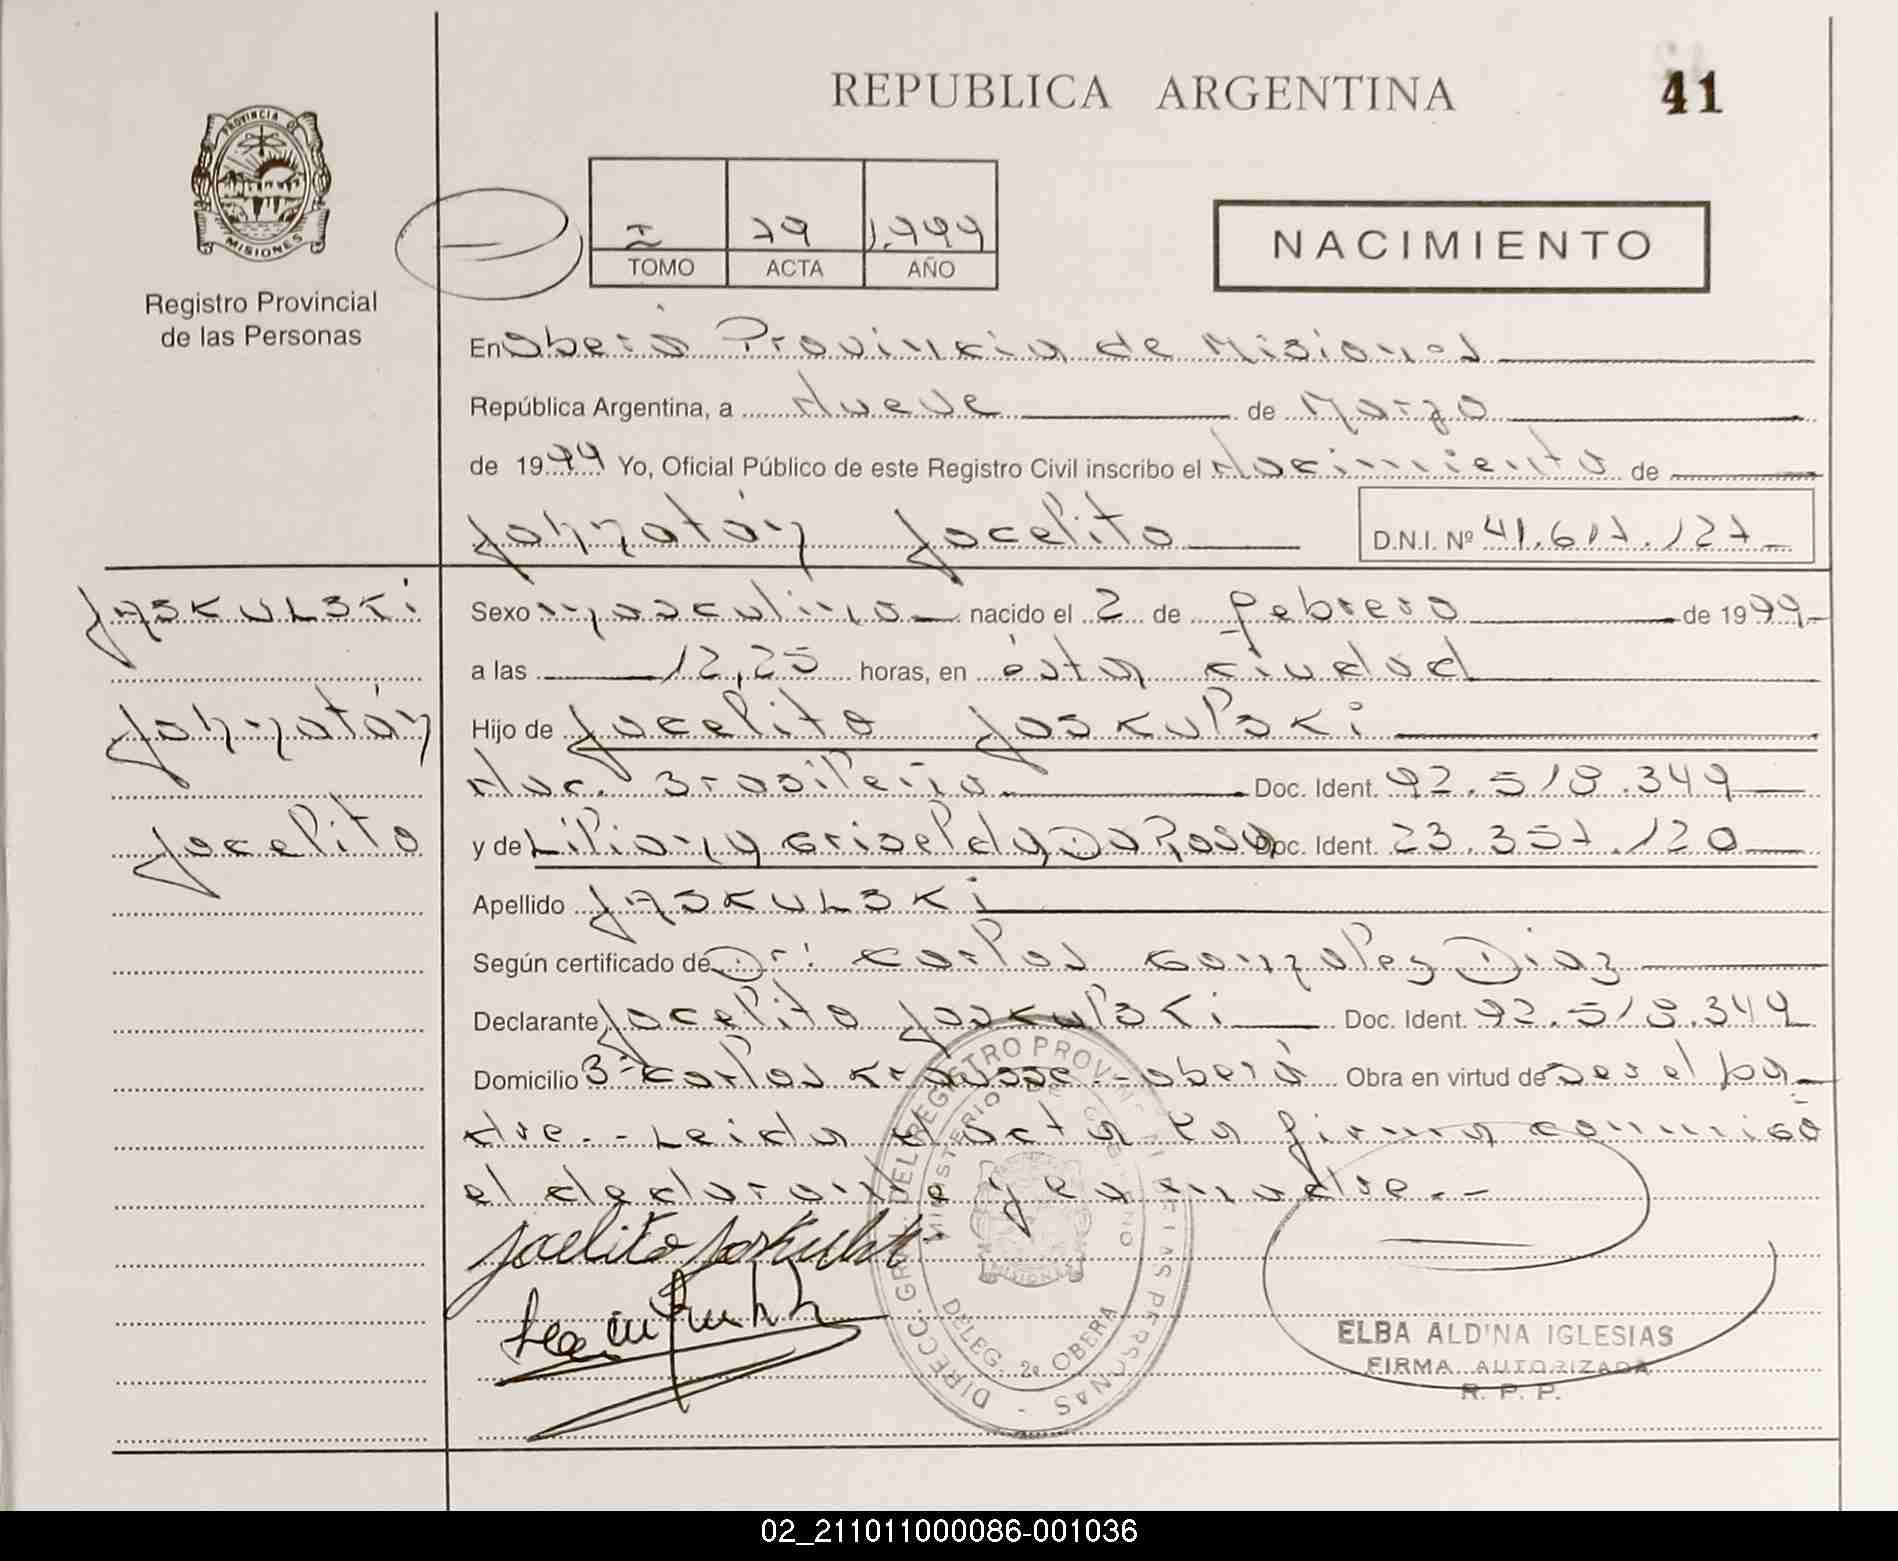 REPUBLICA ARGENTINA
41
PROVINCIA DE
MISIONES
Registro Provincial
de las Personas
I 79 1.999
TOMO ACTA AÑO
NACIMIENTO
En Oberá Provincia de Misiones
República Argentina, a Nueve de Marzo
de 1999 Yo, Oficial Público de este Registro Civil inscribo el Nacimiento de
Johnatán Jocelito D.N.I. Nº 41.617.127
JASKULSKi
Johnatán
Jocelito
Sexo masculino nacido el 2 de febrero de 1999
a las 12,25 horas, en ésta ciudad
Hijo de Jocelito Jaskulski
Nac. Brasileña Doc. Ident. 92.518.349
y de Liliana Griselda Da Rosa Doc. Ident. 23.357.120
Apellido JASKULSKi
Según certificado de Dr: Carlos Gonzalez Diaz
Declarante Jocelito Jaskulski Doc. Ident. 92.518.349
Domicilio Bº Carlos Krausse.- Oberá Obra en virtud de ser el pa-
dre.- Leida el acta la firma conmigo
el declarante y la madre.-
Jocelito Jaskulski
DIRECC. GRAL. DEL REGISTRO PROVINCIAL DE LAS PERSONAS
MINISTERIO DE GOBIERNO
MISIONES
DELEG. 2ª OBERA
ELBA ALDINA IGLESIAS
FIRMA AUTORIZADA
R. P. P.
02_211011000086-001036